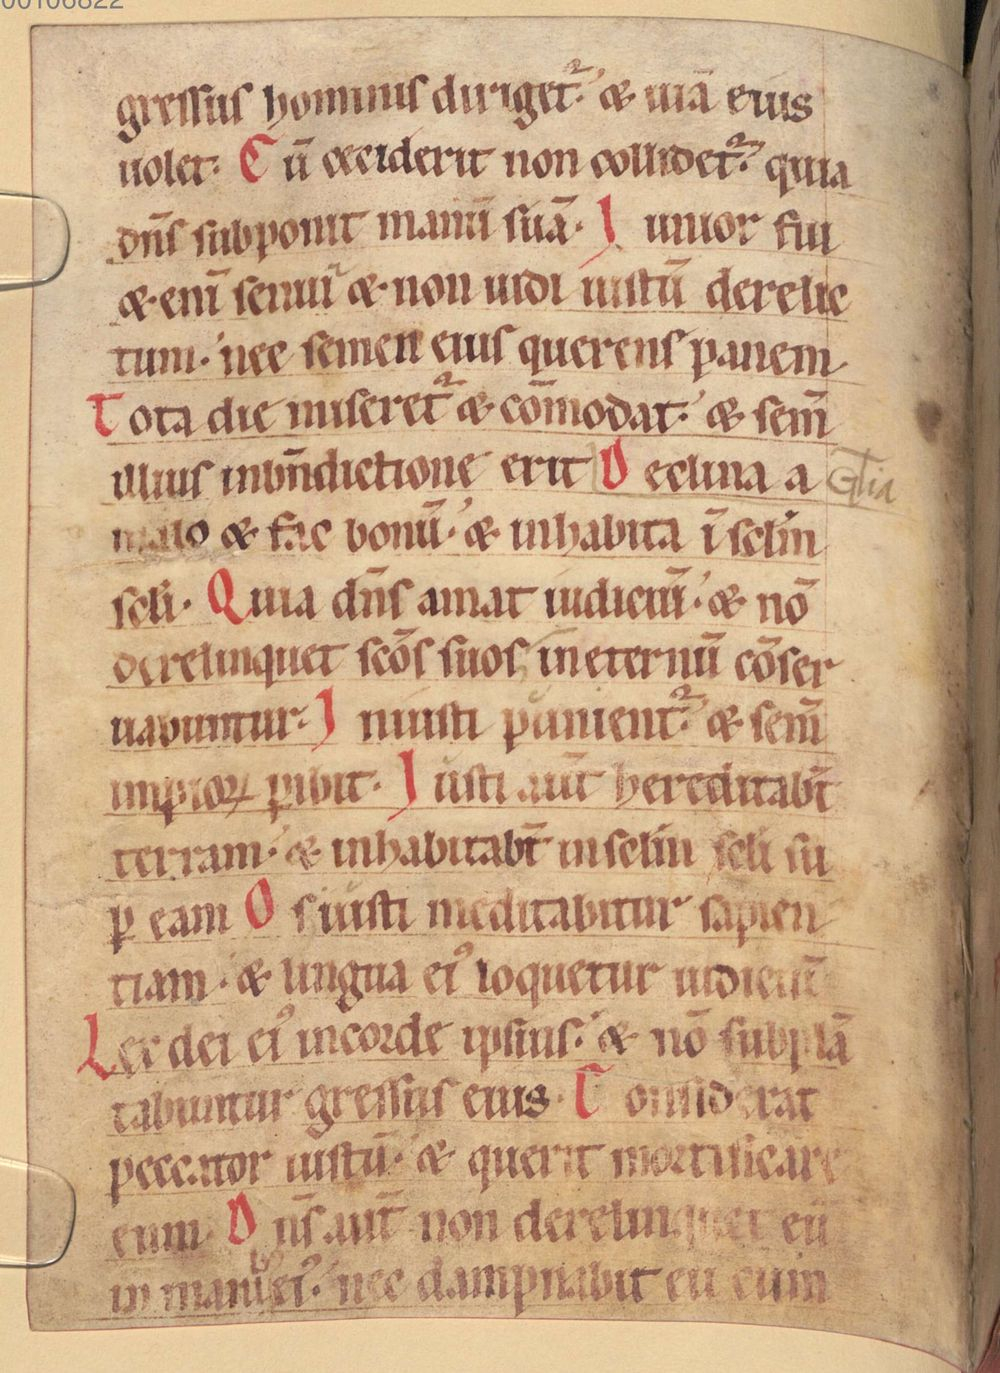 00106822
gressus hominis diriget᷑ ⁊ uiā eius
uolet. Cū ceciderit non collidet᷑ quia
dn̄s subponit manū suā. Iunior fui
⁊ enī senui ⁊ non uidi iustū derelic
tum. nec semen eius querens panem
Tota die miseret᷑ ⁊ cōmodat. ⁊ sem̄
illius inbn̄dictione erit Declina a Gl̄ia
malo ⁊ fac bonū. ⁊ inhabita ī sclm̄
scli. Quia dn̄s amat iudiciū. ⁊ nō
derelinquet scōs suos ineternū cōser
uabuntur. Iniusti punient᷑ ⁊ sem̄
impioꝝ ꝑibit. Iusti aūt hereditabt̄
terram. ⁊ inhabitabt̄ insclm̄ scli su
ꝑ eam Os iusti meditabitur sapien
tiam. ⁊ lingua eiꝰ loquetur iudiciū
Lex dei eiꝰ incorde ipsius. ⁊ nō subplā
tabuntur gressus eius. Considerat
peccator iustū. ⁊ querit mortificare
eum. Dn̄s aūt non derelinquet eū
in manibꝰ eiꝰ. nec dampnabit eū cum